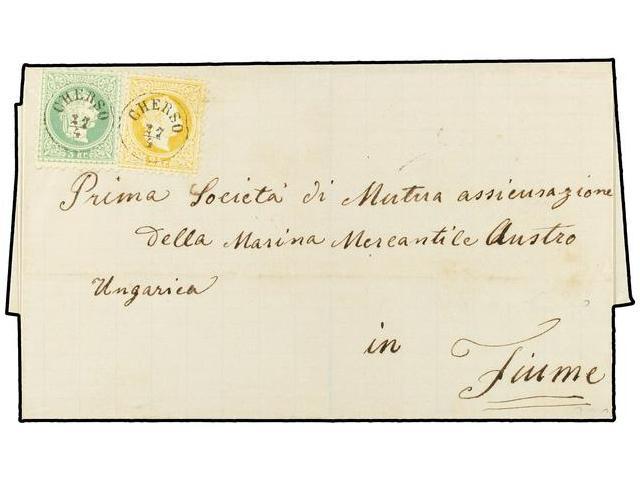 CHERSO
27/4
CHERSO
27/4
3 Kr.
Prima Società di Mutua assicurazione
della Marina Mercantile Austro
Ungarica
in
Fiume